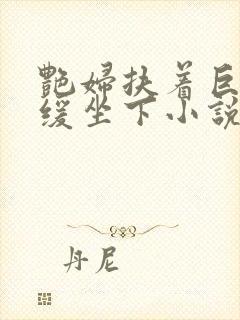 艷婦扶着巨
缓坐下小說
丹尼